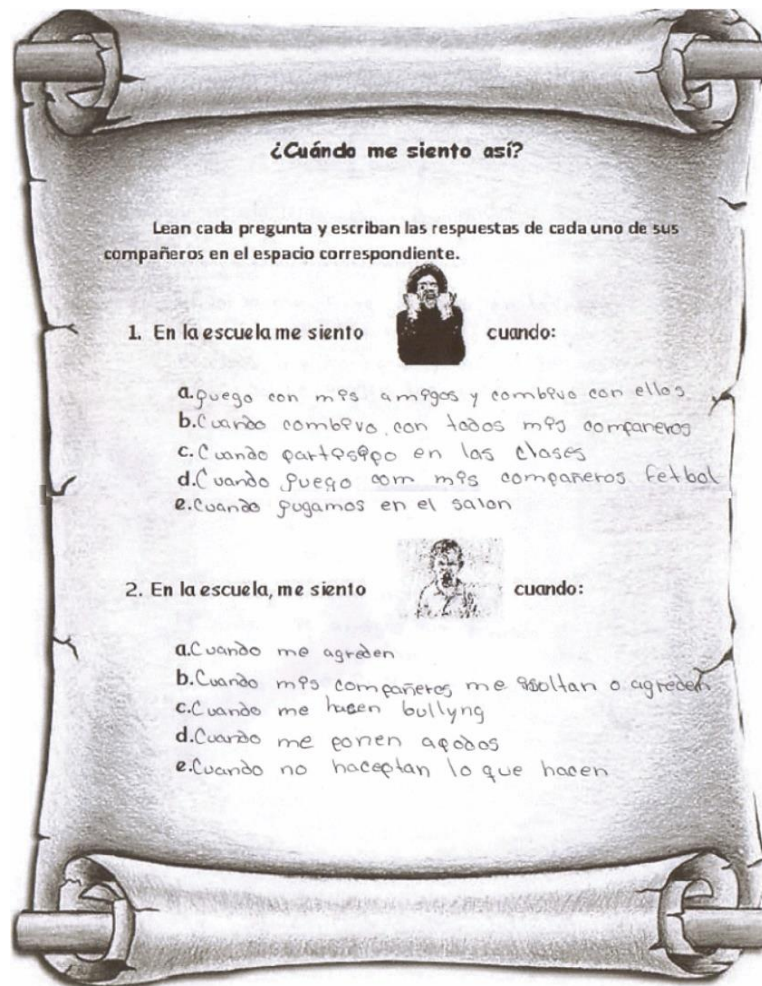 ¿Cuándo me siento así?
Lean cada pregunta y escriban las respuestas de cada uno de sus
compañeros en el espacio correspondiente.
1. En la escuela me siento cuando:
a. juego con mis amigos y combivo con ellos.
b. Cuando combivo con todos mis compañeros
c. Cuando partisipo en las clases
d. Cuando juego com mis compañeros fetbol
e. Cuando jugamos en el salon
2. En la escuela, me siento cuando:
a. Cuando me agreden
b. Cuando mis compañeros me isoltan o agreden
c. Cuando me hacen bullyng
d. Cuando me ponen apodos
e. Cuando no haceptan lo que hacen